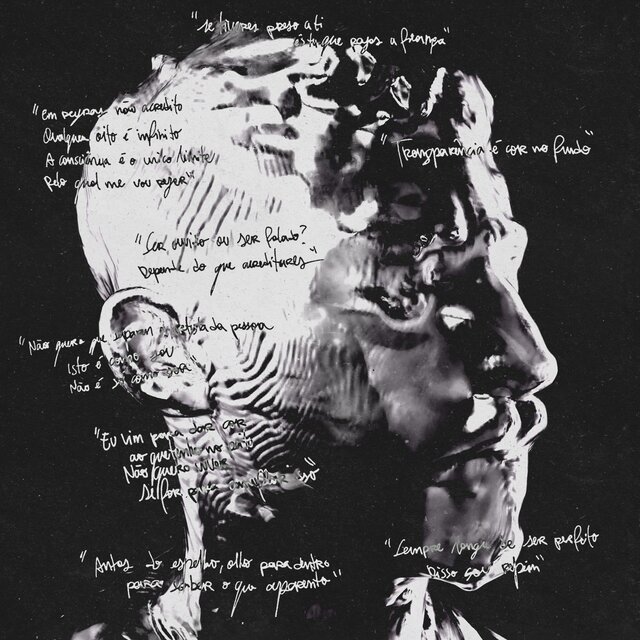 "Se tiveres preso a ti
és tu que pagas a fiança"
"Em rezar não acredito
Qualquer oito é infinito
A consciência é o único limite
Pelo qual me vou reger"
"Transparência é cor no fundo"
"Ser ouvido ou ser falado?
Depende do que acreditares"
"Não queira que separem o artista da pessoa
Isto é como sou
Não é só como soa
"Eu vim para dar cor
ao que
Não quero viver
Se for para isso"
"Antes do espelho, olho para dentro
para saber o que aparento"
"Sempre longe de ser perfeito
Disso sou refém"